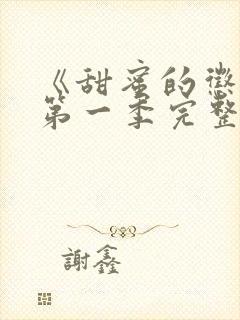 《甜蜜的徵
第一季完整
謝鑫